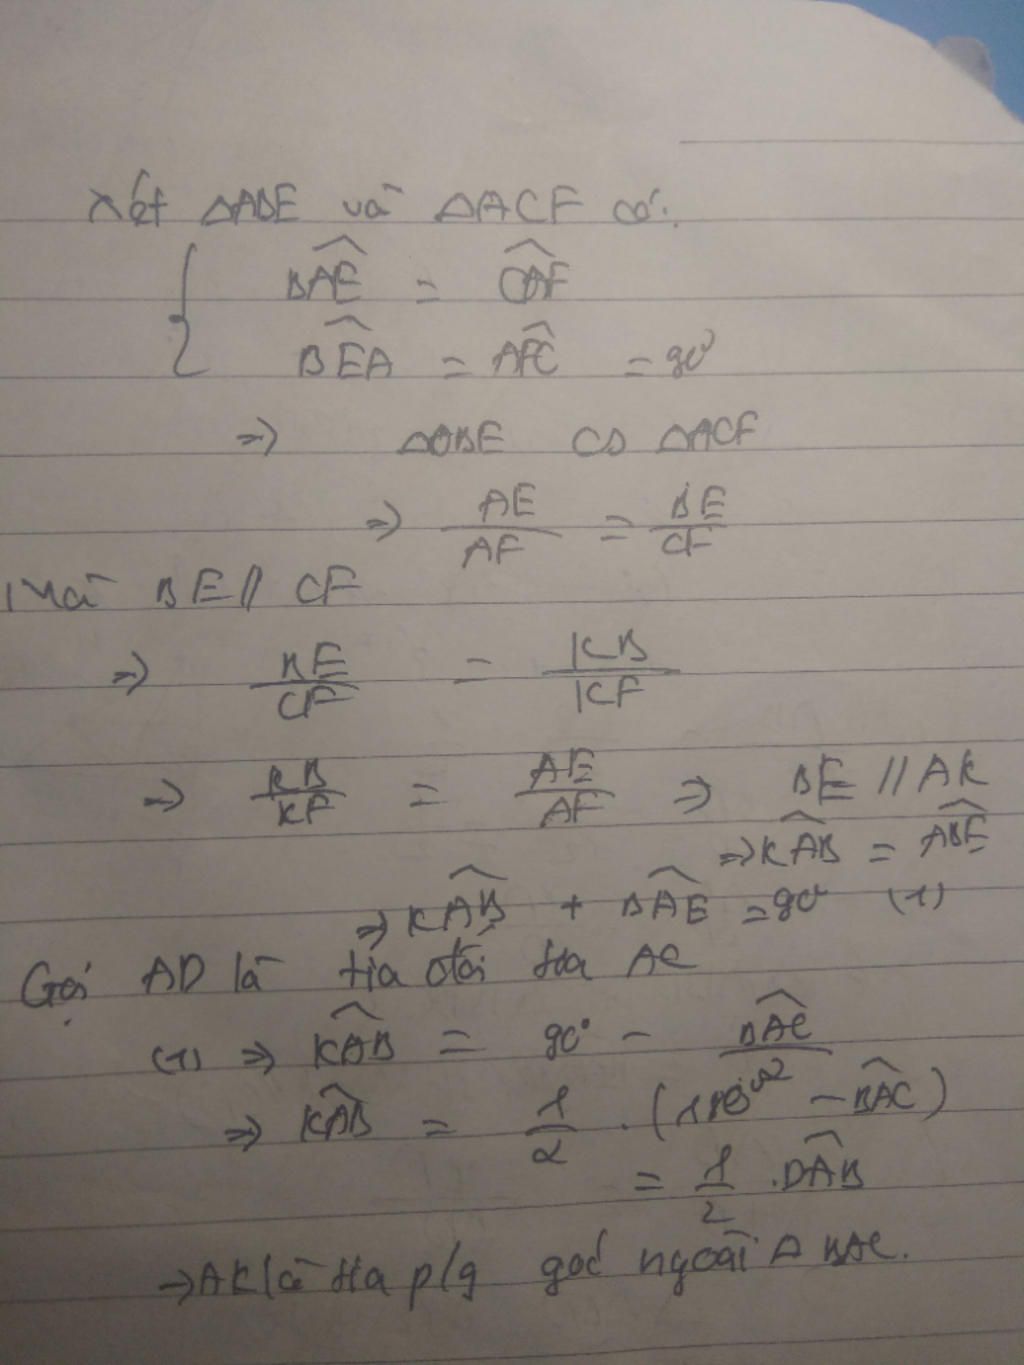 Xét ΔABE và ΔACF có:
{ \widehat{BAE} = \widehat{CAF}
\widehat{BEA} = \widehat{AFC} = 90°
=> ΔABE ∽ ΔACF
=> AE/AF = BE/CF
Mà BE // CF
=> BE/CF = KB/KF
=> KB/KF = AE/AF => BE // AK
=> \widehat{KAB} = \widehat{ABE}
=> \widehat{KAB} + \widehat{BAE} = 90° (1)
Gọi AD là tia đối tia AC
(1) => \widehat{KAB} = 90° - \widehat{BAC}/2
=> \widehat{KAB} = 1/2 . (180° - \widehat{BAC})
= 1/2 . \widehat{DAB}
=> AK là tia p/g góc ngoài Δ BAC.